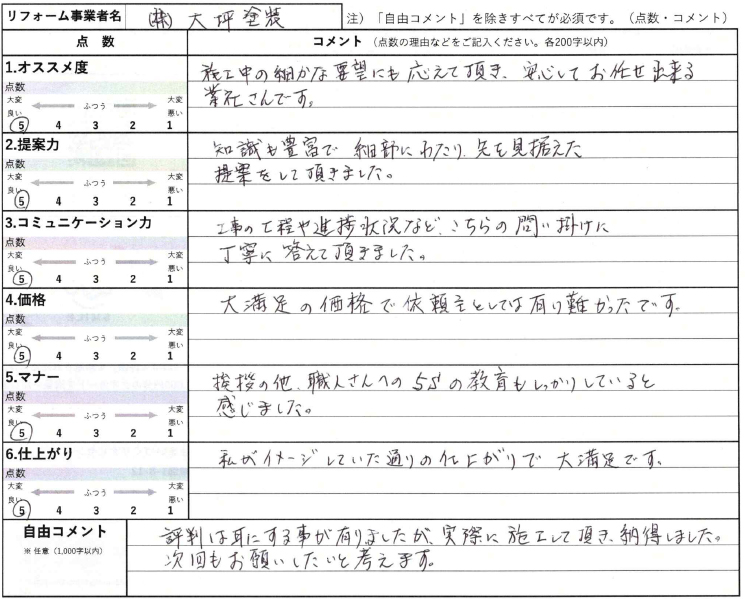 リフォーム事業者名 ㈱ 大坪塗装 注）「自由コメント」を除きすべてが必須です。（点数・コメント）
点 数 コメント（点数の理由などをご記入ください。各200字以内）
1.オススメ度
点数
大変良い ふつう 大変悪い
5 4 3 2 1
施工中の細かな要望にも応えて頂き、安心してお任せ出来る
業社さんです。
2.提案力
点数
大変良い ふつう 大変悪い
5 4 3 2 1
知識も豊富で細部にわたり、先を見据えた
提案をして頂きました。
3.コミュニケーション力
点数
大変良い ふつう 大変悪い
5 4 3 2 1
工事の工程や進捗状況など、こちらの問い掛けに
丁寧に答えて頂きました。
4.価格
点数
大変良い ふつう 大変悪い
5 4 3 2 1
大満足の価格で依頼主としては有り難かったです。
5.マナー
点数
大変良い ふつう 大変悪い
5 4 3 2 1
挨拶の他、職人さんへの5Sの教育もしっかりしていると
感じました。
6.仕上がり
点数
大変良い ふつう 大変悪い
5 4 3 2 1
私がイメージしていた通りの仕上がりで大満足です。
自由コメント
※ 任意（1,000字以内）
評判は耳にする事が有りましたが、実際に施工して頂き、納得しました。
次回もお願いしたいと考えます。